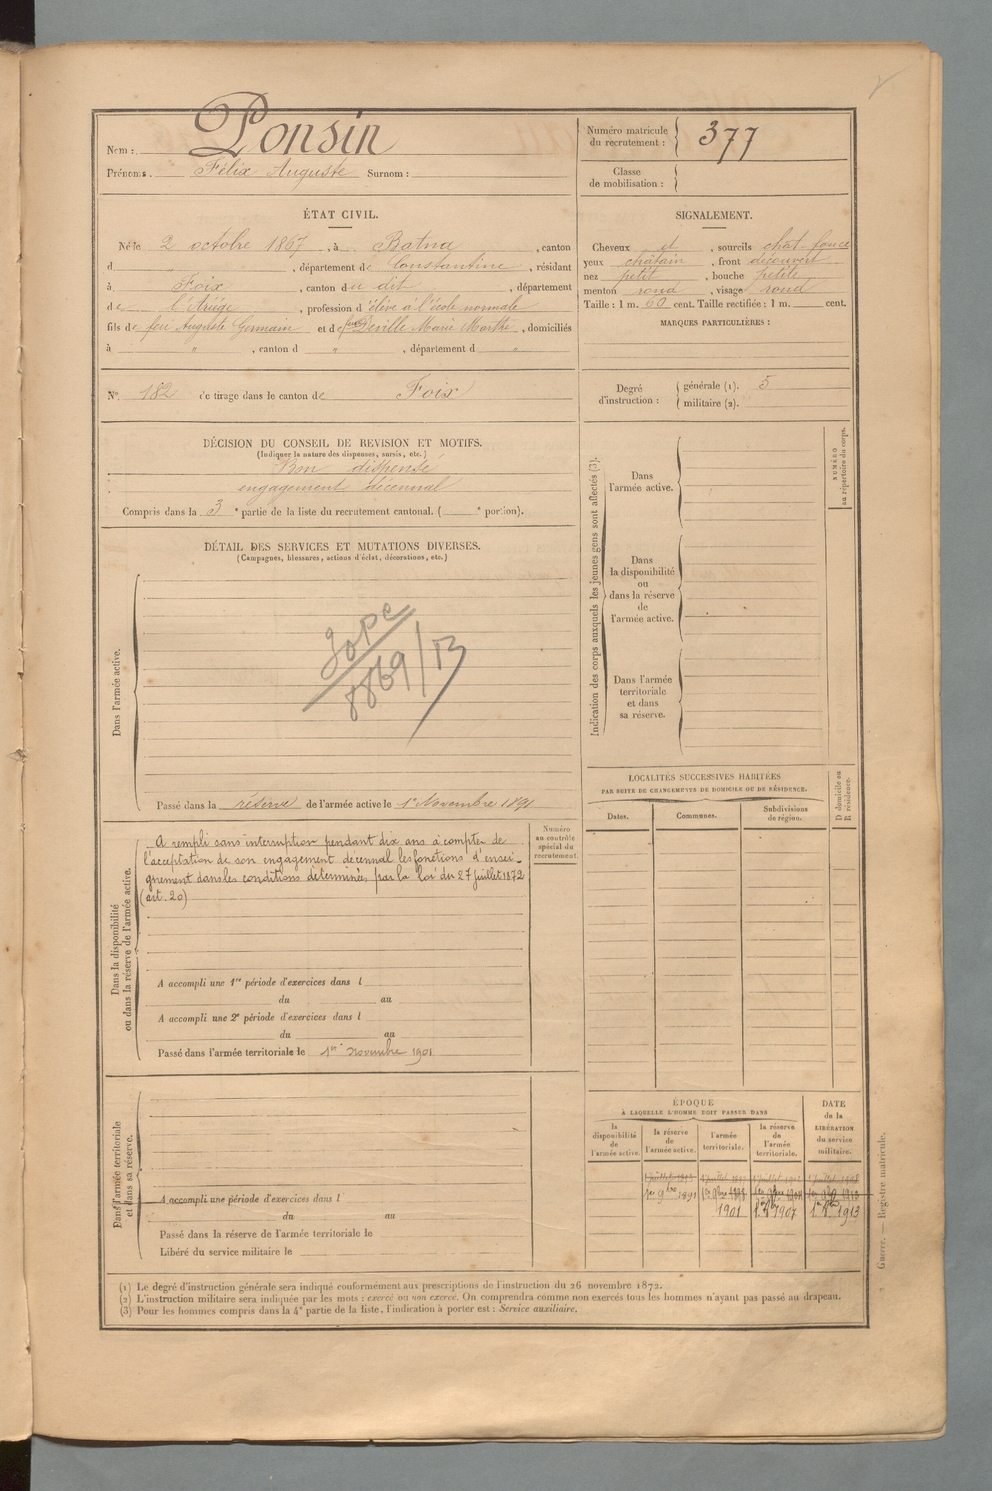 Nom : Ponsin
Prénoms. Félix Auguste Surnom :
Numéro matricule
du recrutement : 377
Classe
de mobilisation :
ÉTAT CIVIL.
Né le 2 octobre 1867, à Batna, canton
d " , département de Constantine, résidant
à Foix, canton du dit, département
de l'Ariége, profession d'élève à l'école normale
fils de feu Auguste Germain et de feue Deville Marie Marthe, domiciliés
à " , canton d " , département d "
SIGNALEMENT.
Cheveux et , sourcils chat. foncé
yeux châtain , front découvert
nez petit , bouche petite
menton rond , visage rond
Taille : 1 m. 60 cent. Taille rectifiée : 1 m. cent.
MARQUES PARTICULIÈRES :
N° 182 de tirage dans le canton de Foix
Degré
d'instruction :
générale (1). 5
militaire (2).
DÉCISION DU CONSEIL DE REVISION ET MOTIFS.
(Indiquer la nature des dispenses, sursis, etc.)
Bon dispensé
engagement décennal
Compris dans la 3e partie de la liste du recrutement cantonal. ( e portion).
DÉTAIL DES SERVICES ET MUTATIONS DIVERSES.
(Campagnes, blessures, actions d'éclat, décorations, etc.)
Dans l'armée active.
8869/13
Passé dans la réserve de l'armée active le 1er Novembre 1891
Indication des corps auxquels les jeunes gens sont affectés (3).
Dans
l'armée active.
Dans
la disponibilité
ou
dans la réserve
de
l'armée active.
Dans l'armée
territoriale
et dans
sa réserve.
NUMÉRO
au répertoire du corps.
Dans la disponibilité
ou dans la réserve de l'armée active.
A rempli sans interruption pendant dix ans à compter de
l'acceptation de son engagement décennal les fonctions d'ensei-
gnement dans les conditions déterminées par la loi du 27 juillet 1872
(art. 20)
Numéro
au contrôle
spécial du
recrutement.
A accompli une 1re période d'exercices dans l
du au
A accompli une 2e période d'exercices dans l
du au
Passé dans l'armée territoriale le 1er novembre 1901
LOCALITÉS SUCCESSIVES HABITÉES
PAR SUITE DE CHANGEMENTS DE DOMICILE OU DE RÉSIDENCE.
Dates.
Communes.
Subdivisions
de région.
D domicile ou
R résidence.
Dans l'armée territoriale
et dans sa réserve.
A accompli une période d'exercices dans l
du au
Passé dans la réserve de l'armée territoriale le
Libéré du service militaire le
ÉPOQUE
À LAQUELLE L'HOMME DOIT PASSER DANS
la
disponibilité
de
l'armée active.
la réserve
de
l'armée active.
l'armée
territoriale.
la réserve
de
l'armée
territoriale.
DATE
de la
LIBÉRATION
du service
militaire.
1er 9bre 1891
1901 1907 1913
Guerre. — Registre matricule.
(1) Le degré d'instruction générale sera indiqué conformément aux prescriptions de l'instruction du 26 novembre 1872.
(2) L'instruction militaire sera indiquée par les mots : exercé ou non exercé. On comprendra comme non exercés tous les hommes n'ayant pas passé au drapeau.
(3) Pour les hommes compris dans la 4e partie de la liste, l'indication à porter est : Service auxiliaire.